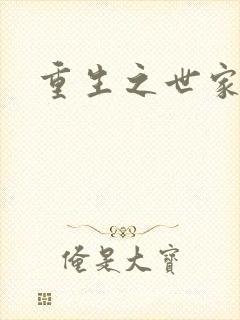 重生之世家
俺是大寶